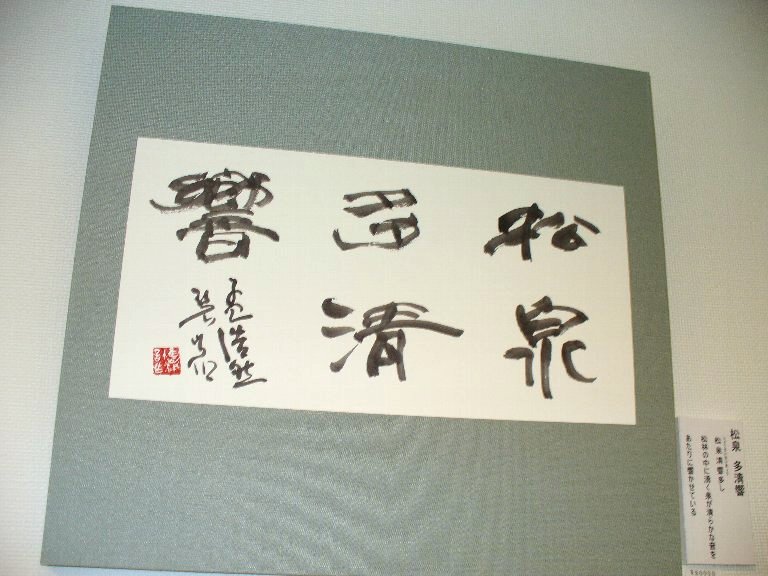 松泉
多清
響
孟浩然
松泉 多清響
松泉清響多し
松林の中に湧く泉が清らかな音を
あたりに響かせている